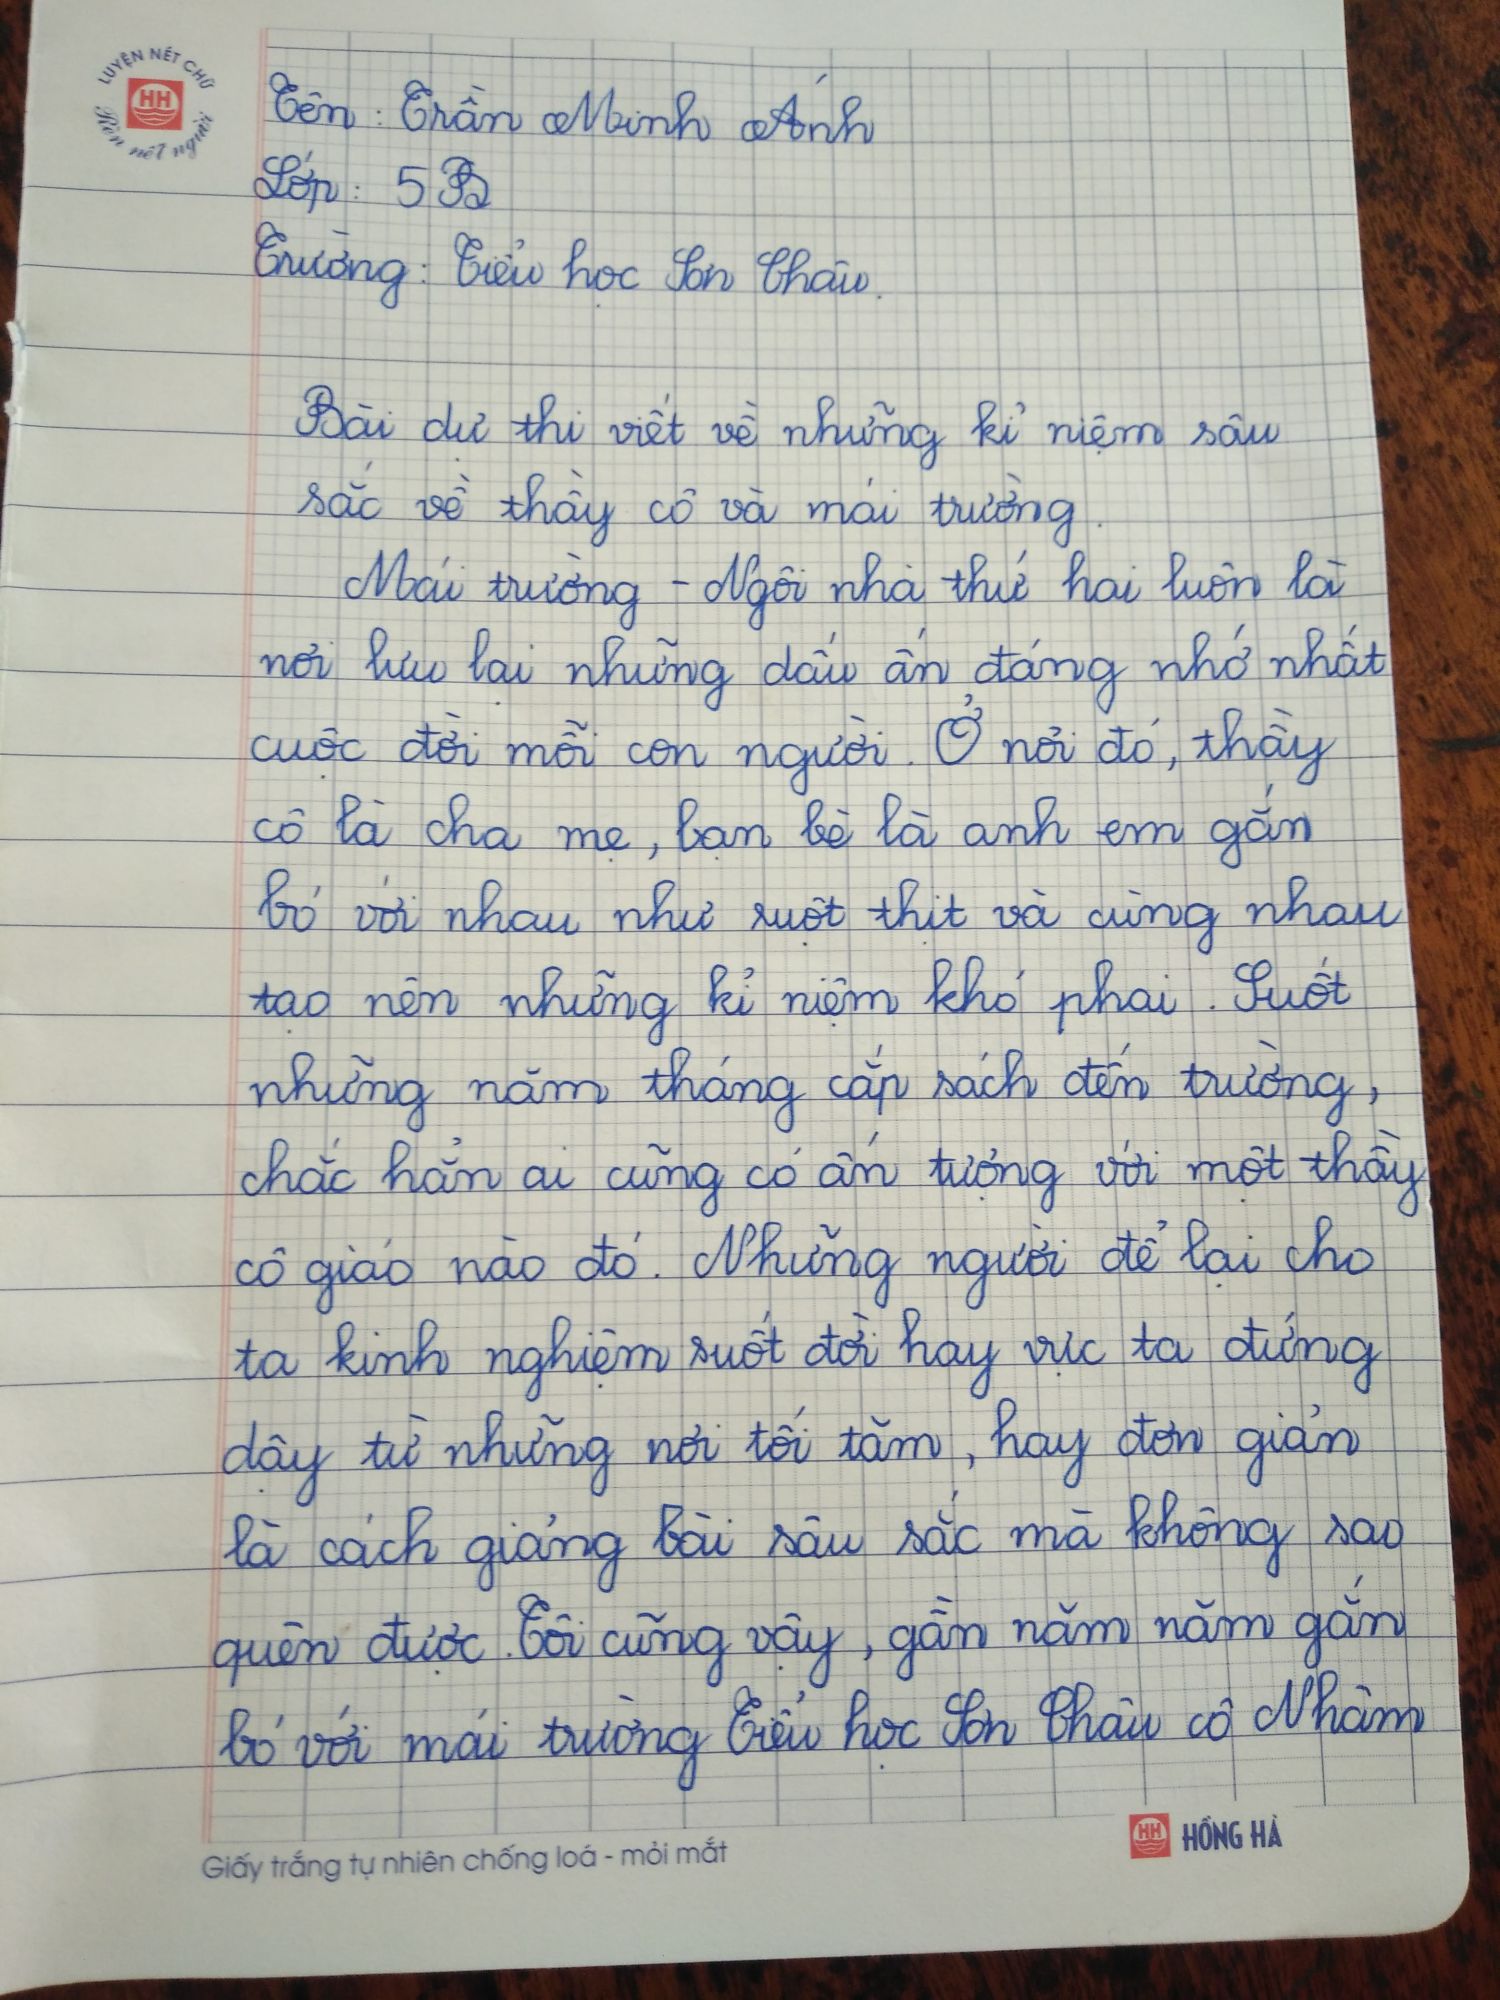 LUYỆN NÉT CHỮ
HH
Rèn nết người
Tên: Trần Minh Ánh
Lớp: 5B
Trường: Tiểu học Sơn Châu.
Bài dự thi viết về những kỉ niệm sâu
sắc về thầy cô và mái trường.
Mái trường - Ngôi nhà thứ hai luôn là
nơi lưu lại những dấu ấn đáng nhớ nhất
cuộc đời mỗi con người. Ở nơi đó, thầy
cô là cha mẹ, bạn bè là anh em gắn
bó với nhau như ruột thịt và cùng nhau
tạo nên những kỉ niệm khó phai. Suốt
những năm tháng cắp sách đến trường,
chắc hẳn ai cũng có ấn tượng với một thầy
cô giáo nào đó. Những người để lại cho
ta kinh nghiệm suốt đời hay vực ta đứng
dậy từ những nơi tối tăm, hay đơn giản
là cách giảng bài sâu sắc mà không sao
quên được. Tôi cũng vậy, gần năm năm gắn
bó với mái trường Tiểu học Sơn Châu cô Nhâm
HH HỒNG HÀ
Giấy trắng tự nhiên chống loá - mỏi mắt